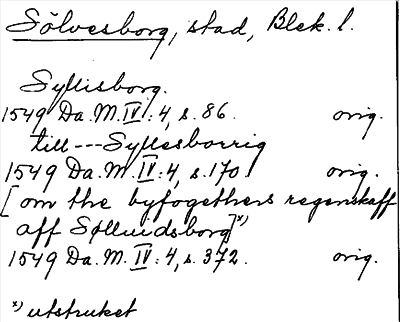 Sölvesborg, stad, Blek. l.
Syllisborg.
1549 Da. M. IV: 4, s. 86. orig.
till --- Syllesborrig
1549 Da. M. IV: 4, s. 170 orig.
[om the byfogethers regenskaff
aff Sølluidsborg]*)
1549 Da. M. IV: 4, s. 372. orig.
*) utstruket